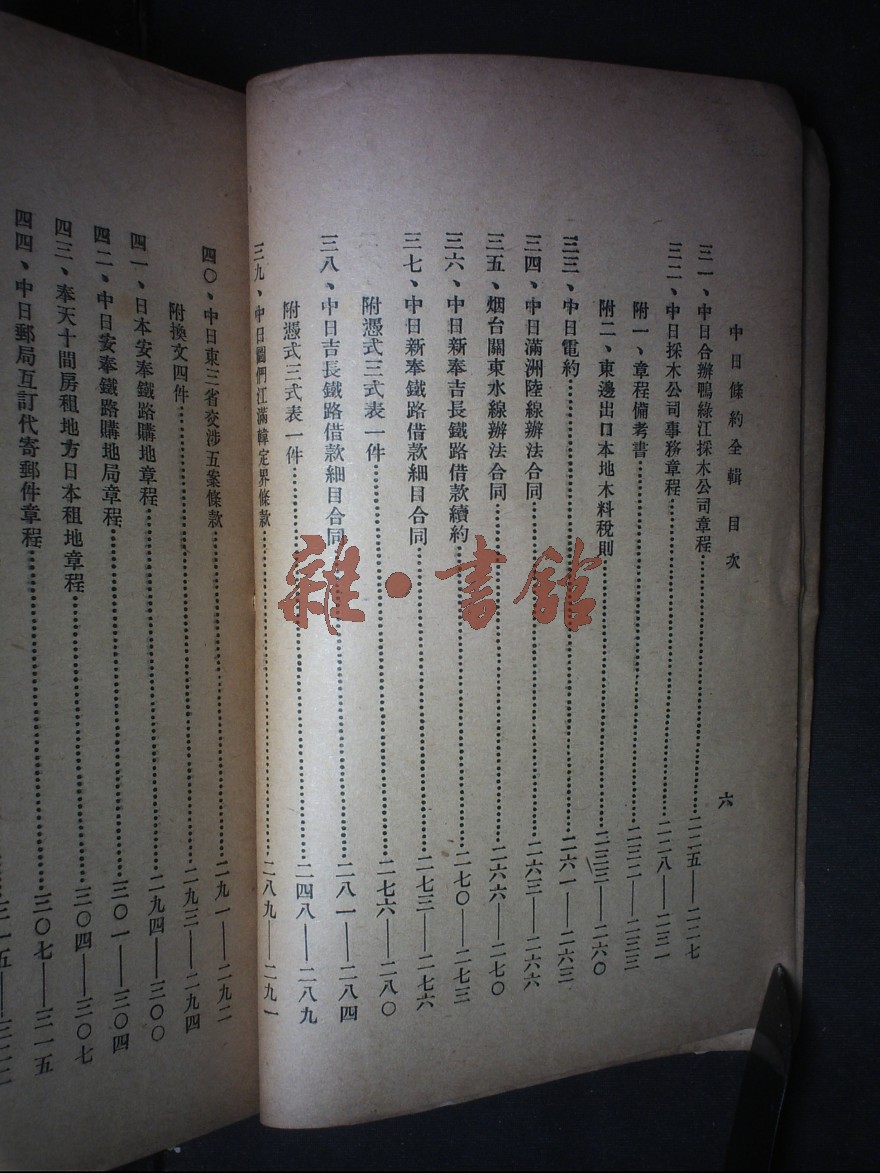 中日條約全輯　目次
六
三一、中日合辦鴨綠江採木公司章程……二二五——二二七
三二、中日採木公司事務章程……二二八——二三一
附一、章程備考書……二三二——二三三
附二、東邊出口本地木料稅則……二三三——二六〇
三三、中日電約……二六一——二六三
三四、中日滿洲陸線辦法合同……二六三——二六六
三五、烟台關東水線辦法合同……二六六——二七〇
三六、中日新奉吉長鐵路借款續約……二七〇——二七三
三七、中日新奉鐵路借款細目合同……二七三——二七六
附憑式三式表一件……二七六——二八〇
三八、中日吉長鐵路借款細目合同……二八一——二八四
附憑式三式表一件……二四八——二八九
三九、中日圖們江滿韓定界條款……二八九——二九一
四〇、中日東三省交涉五案條款……二九一——二九二
附換文四件……二九三——二九四
四一、日本安奉鐵路購地章程……二九四——三〇〇
四二、中日安奉鐵路購地局章程……三〇一——三〇四
四三、奉天十間房租地方日本租地章程……三〇四——三〇七
四四、中日郵局互訂代寄郵件章程……三〇七——三一五
雜·書館